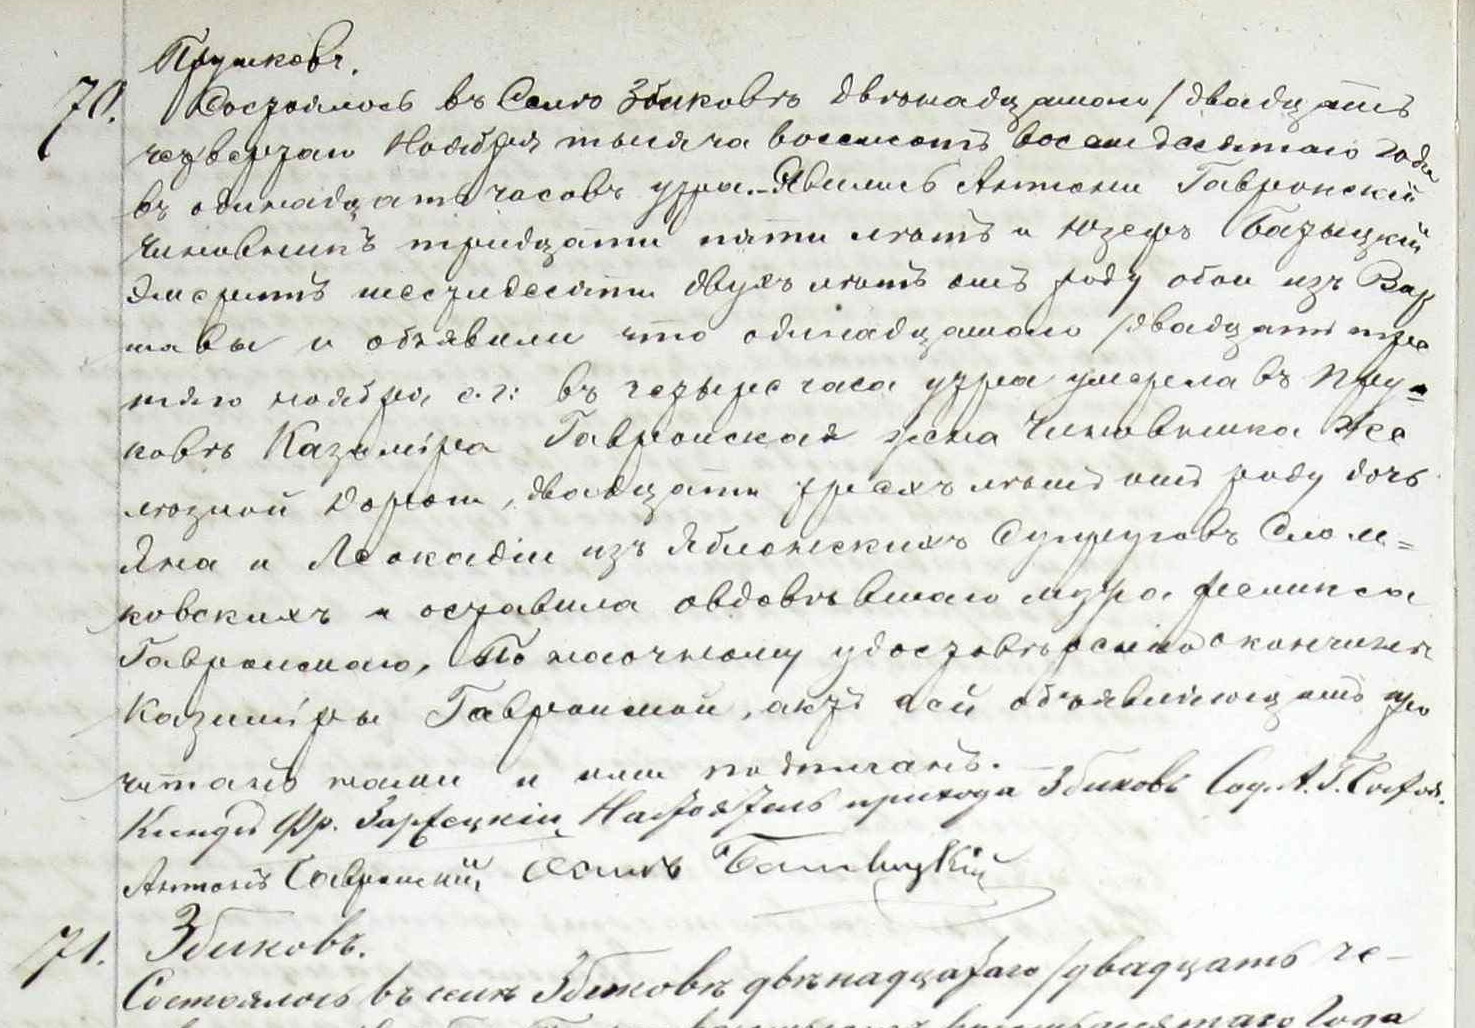 Прушковъ.
70. Состоялось въ Селѣ Збиковѣ двѣнадцатаго /двадцать
четвертаго Ноября тысяча восемьсотъ восемьдесятаго года
въ одинадцать часовъ утра. - Явились Антони Гавронскій
Чиновникъ тридцати пяти лѣтъ и Юзефъ Батыцкій
Эмеритъ шестидесяти двухъ лѣтъ отъ роду обои изъ Вар
шавы и объявили что одинадцатаго /двадцать тре
тяго ноября с. г: въ четыре часа утра умерла въ Пру=
ковѣ Казимѣра Гавронская жена Чиновника Же
лѣзной Дороги, двадцати трехъ лѣтъ отъ роду дочь
Яна и Леокадіи изъ Яблонскихъ Супруговъ Слом=
ковскихъ и оставила овдовѣвшаго мужа Феликса
Гавронскаго, По наочному удостовѣренію о кончинѣ
Казимѣры Гавронской, актъ сей объявляющимъ про
читанъ нами и ими подписанъ. —
Ксендзъ Фр. Зарѣецкій Настоятель прихода Збиковъ Сод. А. Г. Состоя.
Антонъ Гавронскій
71. Збиковъ.
Состоялось въ селѣ Збиковѣ двѣнадцатаго /двадцать че-